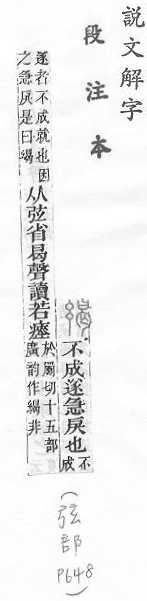 說文解字
段注本
不成遂急戾也
不
成
遂者不成就也因
之急戾是曰
从弦省曷聲讀若瘞
於罽切十五部
廣韵作非
(弦部 P648)